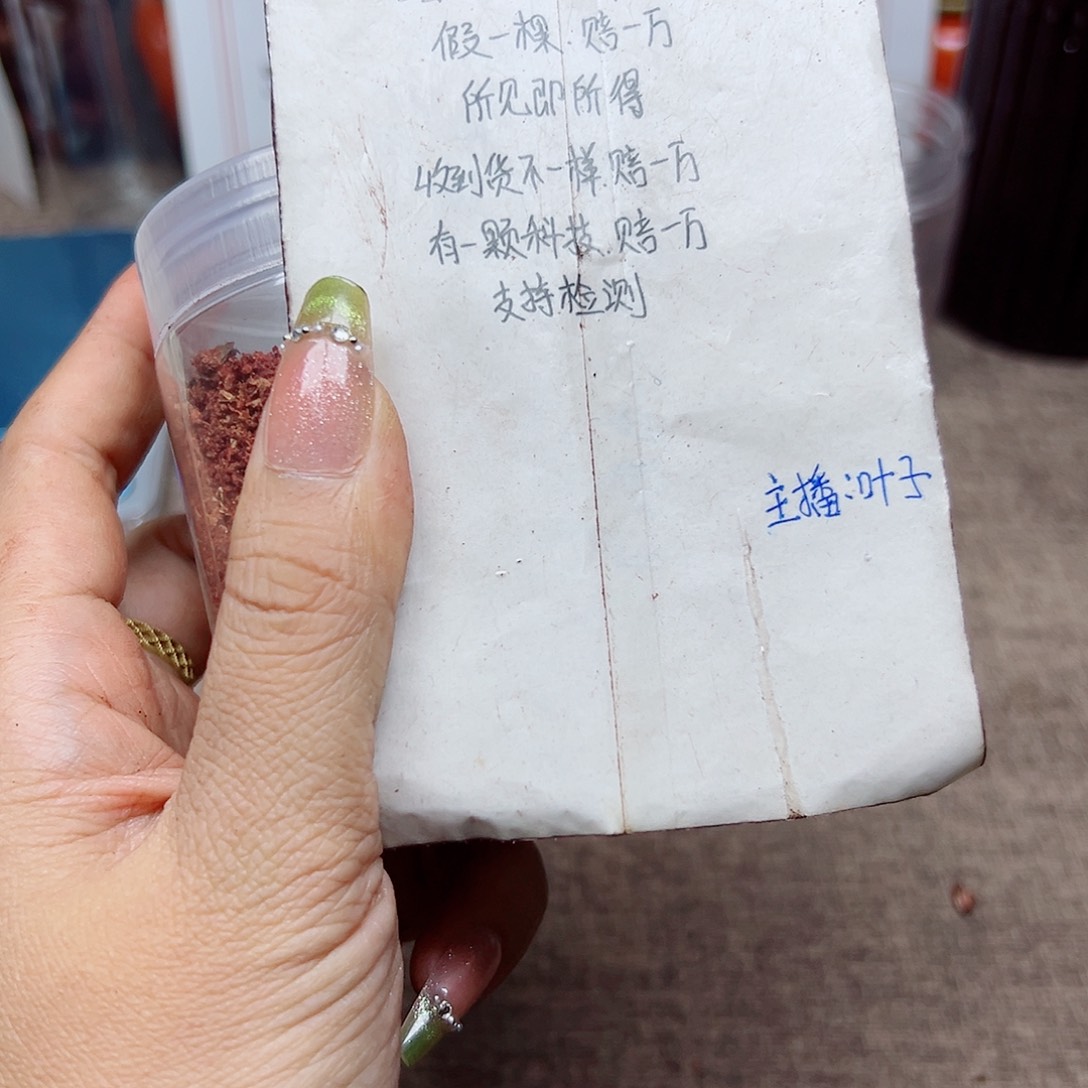 假一棵.赔一万
所见即所得
收到货不一样.赔一万
有一颗科技.赔一万
支持检测
主播:叶子